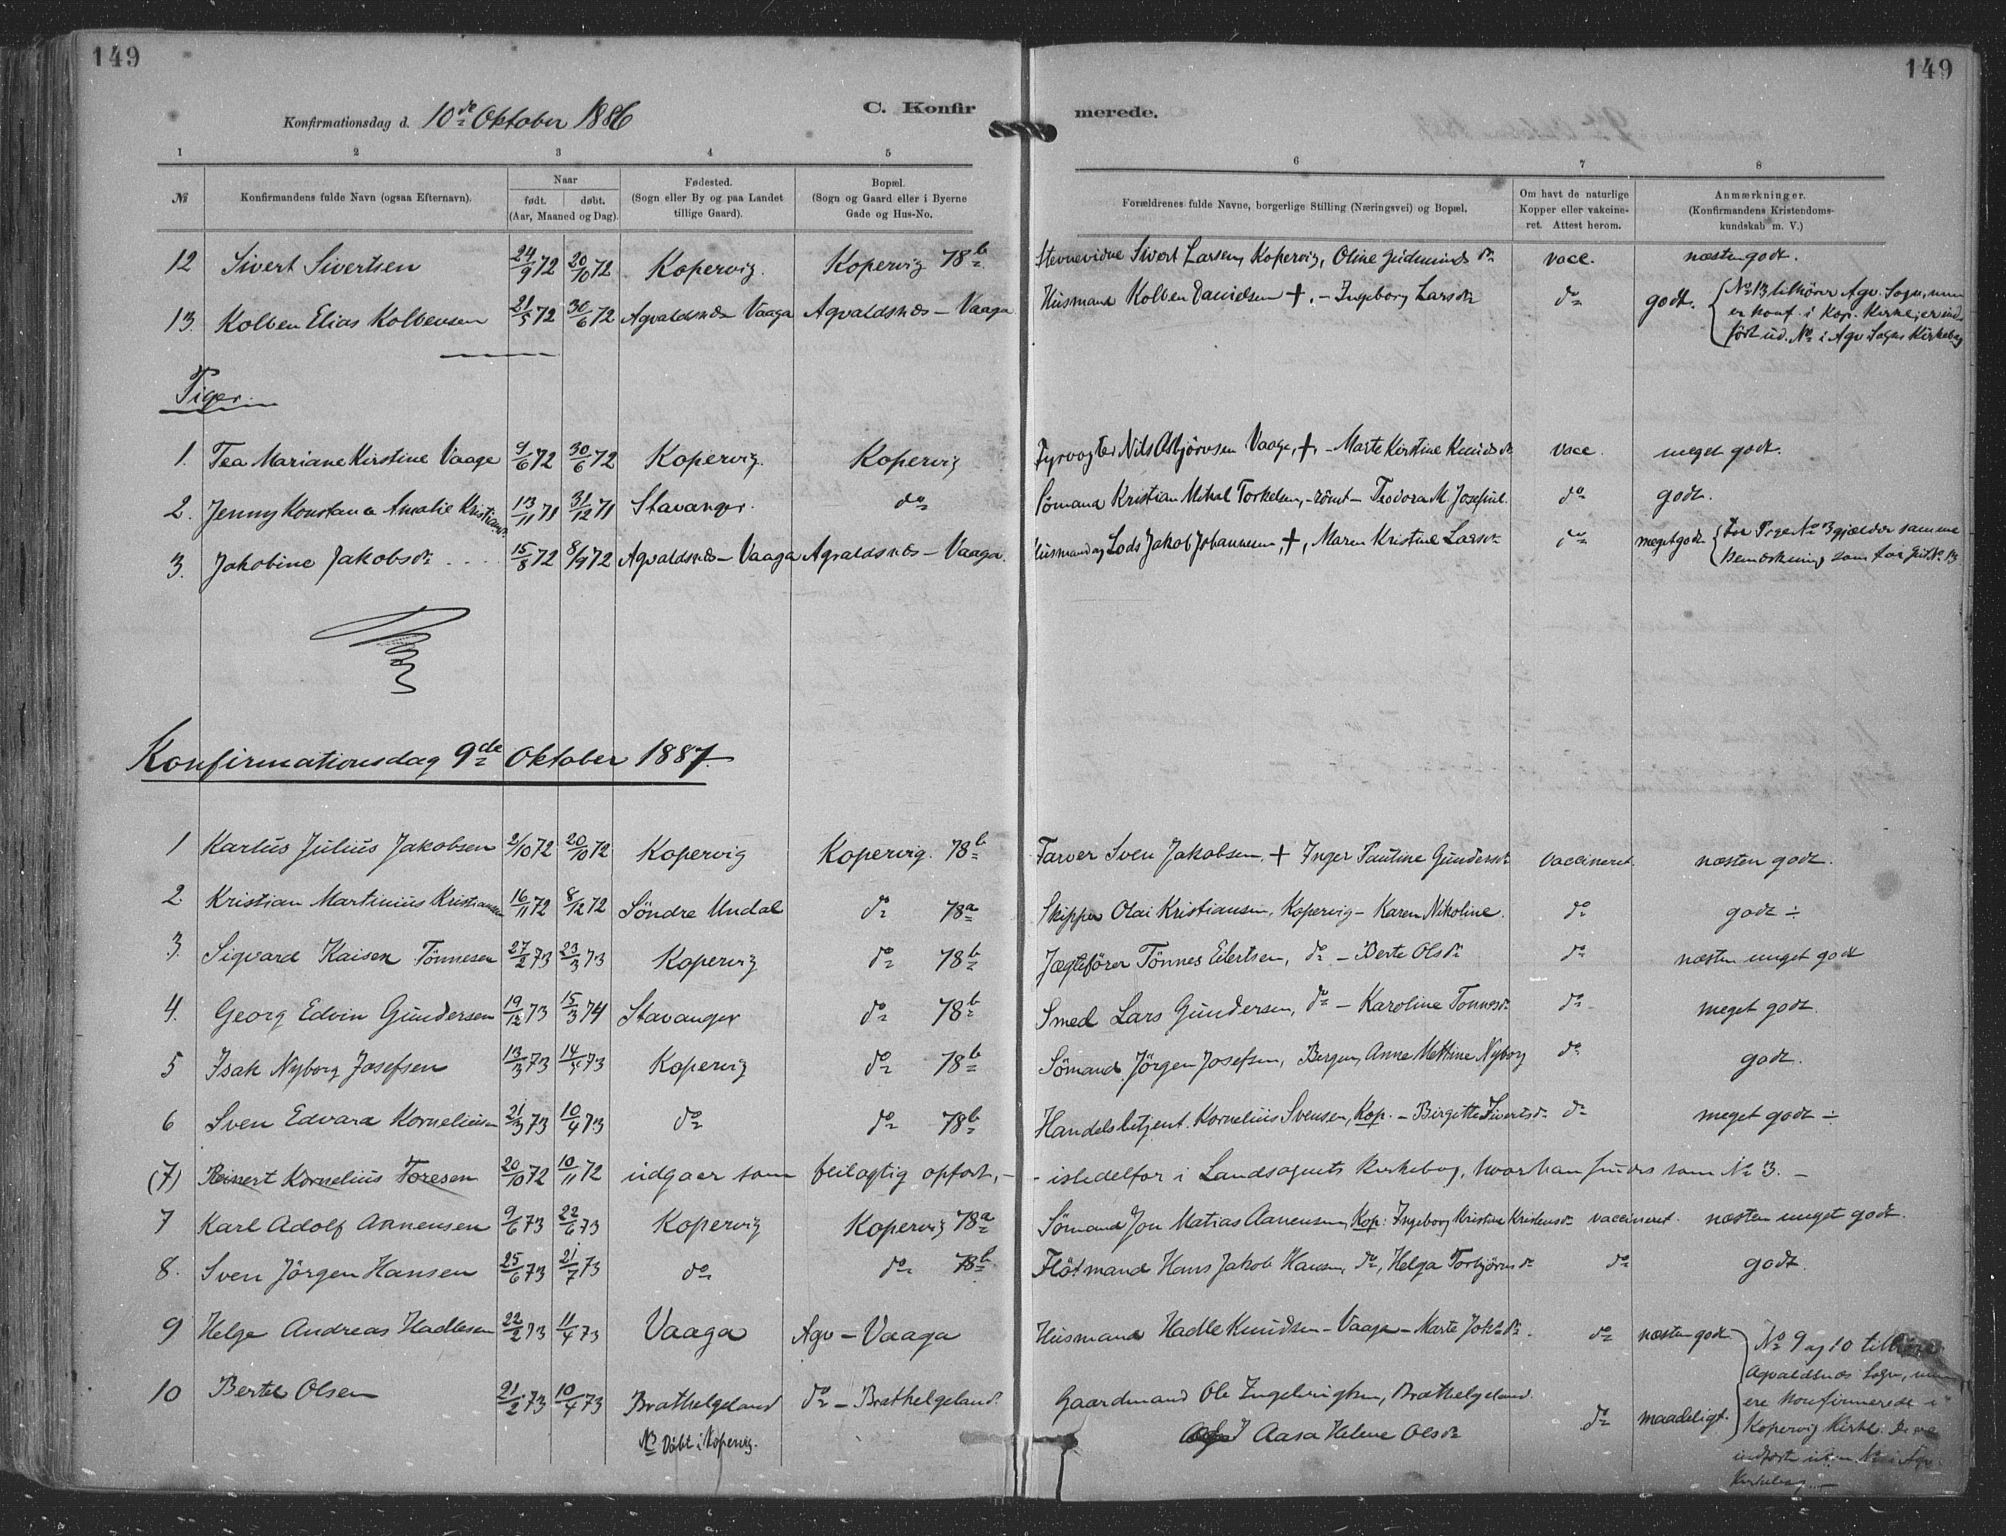 149
149
Konfirmationsdag d. 10de Oktober 1886
C. Konfir
merede.
1 2 3 4 5 6 7 8
№ Konfirmandens fulde Navn (ogsaa Efternavn). Naar født. døbt. (Aar, Maaned og Dag). Fødested. (Sogn eller By og paa Landet tillige Gaard). Bopæl. (Sogn og Gaard eller i Byerne Gade og Hus-No. Forældrenes fulde Navne, borgerlige Stilling (Næringsvei) og Bopæl. Om havt de naturlige Kopper eller vakcineret. Attest herom. Anmærkninger. (Konfirmandens Kristendomskundskab m. V.)
12 Sivert Sivertsen 24/9 72 20/10 72 Kopervig. Kopervig 78b Stevnevidne Sivert Larsen, Kopervig, Oline Gudmundsdr vacc. næsten godt.
13 Kolben Elias Kolbensen 21/5 72 30/6 72 Agvaldsnæs – Vaaga Agvaldsnæs – Vaaga Husmand Kolben Danielsen +, – Ingeborg Larsdr do godt. No 13 tilhører Agv. Sogn, men
er konf. i Kop. Kirke; er ind-
ført ud. No i Agv Sogns Kirkebog
Piger.
1. Tea Mariane Kirstine Vaage 9/6 72 30/6 72 Kopervig. Kopervig Fyrvogter Nils Asbjörnsen Vaage, +, – Marte Kirstine Knudsdr vacc. meget godt.
2. Jenny Konstance Amalie Kristiansdr 13/11 71 31/12 71 Stavanger. do Sømand Kristian Mihal Torkelsen, – rømt – Teodora M. Josefine do godt.
3. Jakobine Jakobsdr 15/8 72 8/9 72 Agvaldsnæs – Vaaga Agvaldsnæs – Vaaga. Husmand og Lods Jakob Johannesen, +, Maren Kristine Larsdr do meget godt For Pige No 3 gjælder samme
Bemærkning som for Gut No 13
Konfirmationsdag 9de Oktober 1887.
1 Karlus Julius Jakobsen 2/10 72 20/10 72 Kopervig Kopervig. 78b Farver Sven Jakobsen, + Inger Pauline Gundersdr vaccineret. næsten godt.
2. Kristian Martinius Kristiansen 16/11 72 8/12 72 Söndre Undal do 78a Skipper Olai Kristiansen, Kopervig – Karen Nikoline. do godt ÷
3. Sigvard Kaisen Tönnesen 27/2 73 23/3 73 Kopervig do 78b Jægtefører Tönnes Eilertsen, do – Berte Olsdr do næsten meget godt
4. Georg Edvin Gundersen 19/12 73 15/3 74 Stavanger do 78b Smed Lars Gundersen, do – Karoline Tonnesdr do meget godt.
5 Isak Nyborg Josefsen 13/3 73 14/4 73 Kopervig do 78b Sömand Jörgen Josefsen, Bergen, Anne Mettine Nyborg do godt.
6 Sven Edvard Korneliusen 21/3 73 10/4 73 do do 78b Handelsbetjent Kornelius Svensen, Kop. – Birgitte Sivertsdr do meget godt ÷
(7) Reinert Kornelius Toresen 20/10 72 10/11 72 udgaar som feilagtig opfört, – istedetfor i Landsognets Kirkebog, hvor han findes som No 3. –
7 Karl Adolf Annensen 9/6 73 22/6 73 Kopervig Kopervig 78a Sömand Jon Matias Aanensen, Kop: Ingeborg Kristine Kristensdr vaccineret. næsten meget godt.
8. Sven Jörgen Hansen 25/6 73 21/7 73 do do 78b. Flötmand Hans Jakob Hansen, do, Helga Torbjörnsdr do godt.
9 Helge Andreas Hadlesen 22/2 73 11/4 73 Vaaga Agv – Vaaga Husmand Hadle Knudsen – Vaage – Marte Johsdr. do næsten godt No 9 og 10 tilhører
Agvaldsnæs Sogn, men
ere Konfirmerede i
10 Bertel Olsen 21/2 73 10/4 73 Brathelgeland do – Brathelgeland. Gaardmand Ole Ingebrigtsen, Brathelgeland. Aasa Helene Olsdr do maadeligt. Kopervig Kirke. De ere
NB Döbt i Kopervig.
indførte uden No i Agv.
Kirkebog.